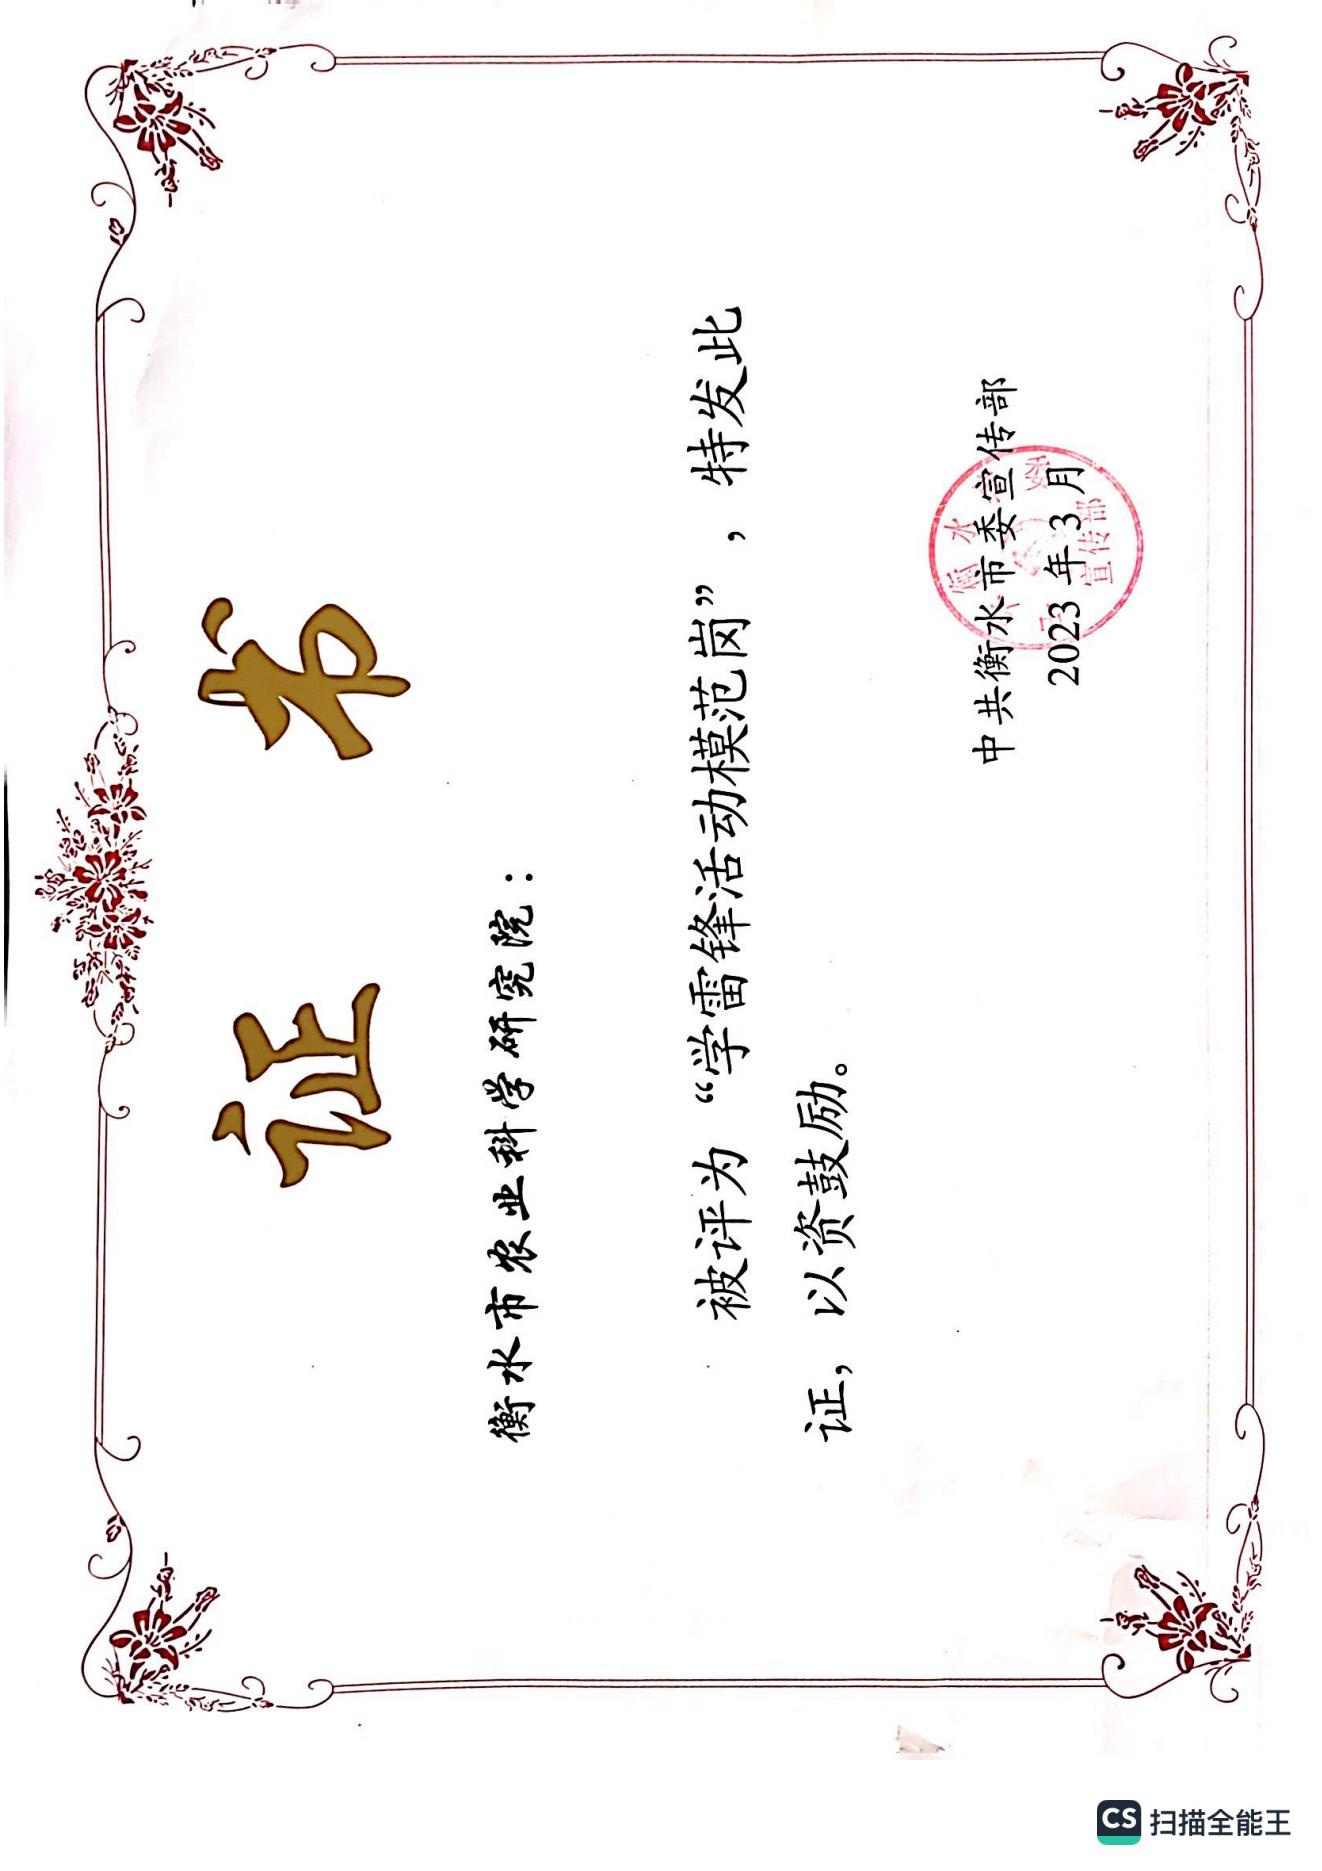 证 书
衡水市农业科学研究院：
被评为 “学雷锋活动模范岗”，特发此
证，以资鼓励。
中共衡水市委宣传部
2023年3月
水
委
宣传部
CS 扫描全能王